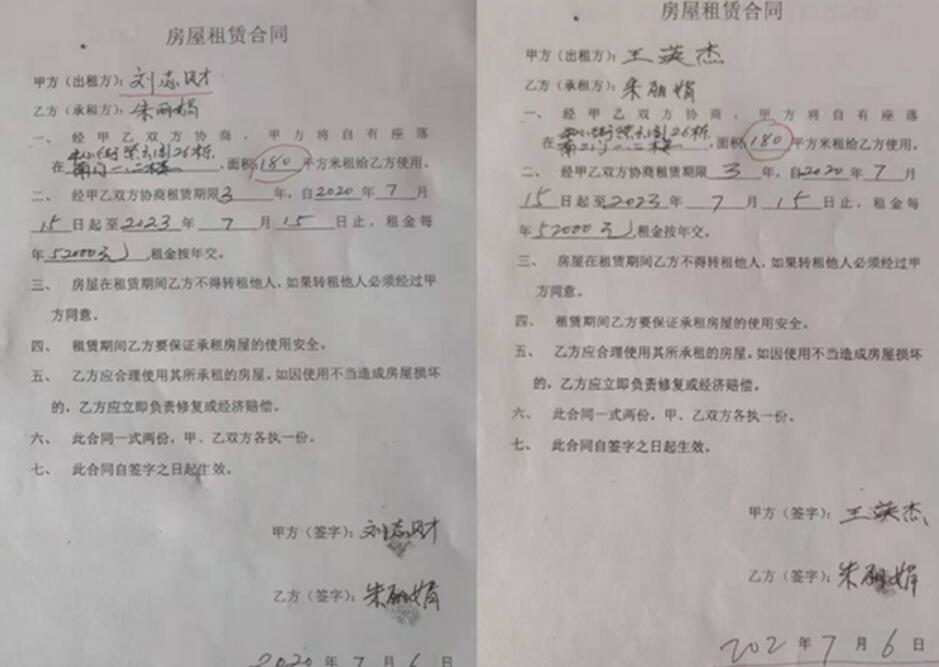 房屋租赁合同
甲方（出租方）：刘志财
乙方（承租方）：朱丽娟
一、经甲乙双方协商，甲方将自有座落
在 26栋 一、二楼,面积180平方米租给乙方使用。
二、经甲乙双方协商租赁期限3年,自2020年7月
15日起至2023年7月15日止，租金每
年52000元,租金按年交。
三、房屋在租赁期间乙方不得转租他人,如果转租他人必须经过甲
方同意。
四、租赁期间乙方要保证承租房屋的使用安全。
五、乙方应合理使用其所承租的房屋,如因使用不当造成房屋损坏
的，乙方应立即负责修复或经济赔偿。
六、此合同一式两份，甲、乙双方各执一份。
七、此合同自签字之日起生效。
甲方（签字）：刘志财
乙方（签字）：朱丽娟
2020年7月6日
房屋租赁合同
甲方（出租方）：王英杰
乙方（承租方）：朱丽娟
一、经甲乙双方协商，甲方将自有座落
在 26栋 一、二楼,面积180平方米租给乙方使用。
二、经甲乙双方协商租赁期限3年,自2020年7月
15日起至2023年7月15日止，租金每
年52000元,租金按年交。
三、房屋在租赁期间乙方不得转租他人,如果转租他人必须经过甲
方同意。
四、租赁期间乙方要保证承租房屋的使用安全。
五、乙方应合理使用其所承租的房屋,如因使用不当造成房屋损坏
的，乙方应立即负责修复或经济赔偿。
六、此合同一式两份，甲、乙双方各执一份。
七、此合同自签字之日起生效。
甲方（签字）：王英杰
乙方（签字）：朱丽娟
202年7月6日